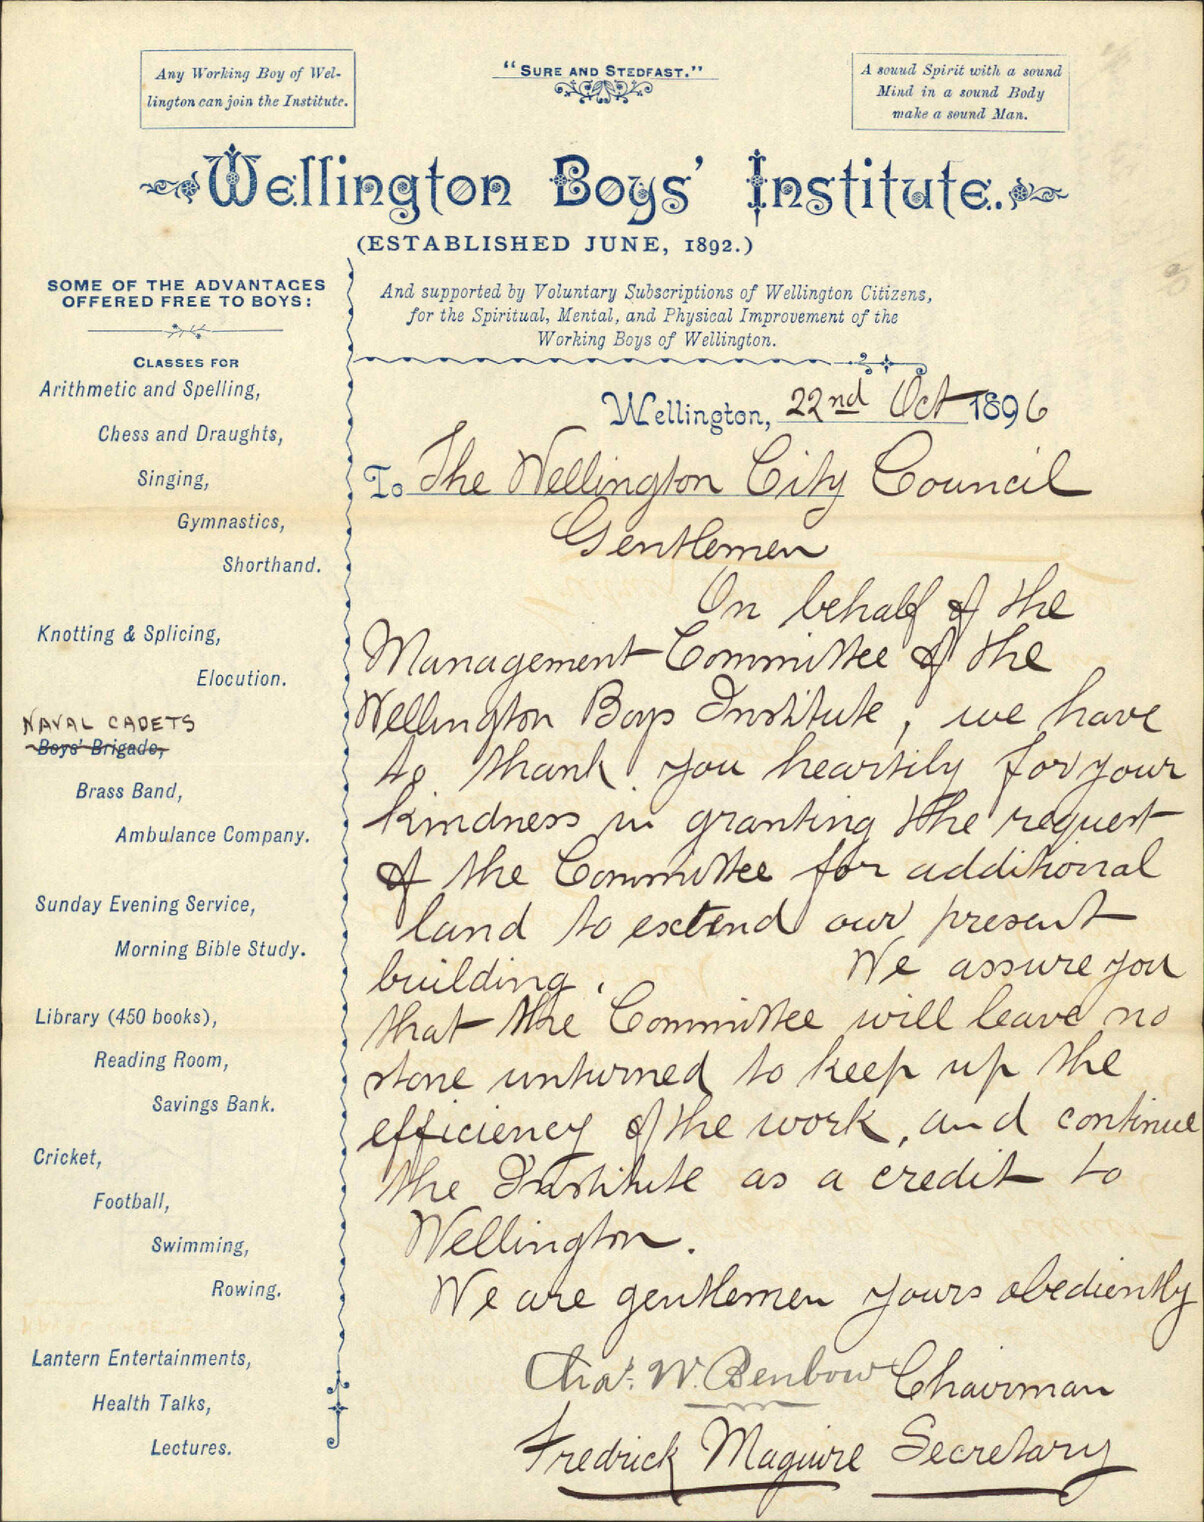 Any Working Boy of Wel-
lington can join the Institute.
"SURE AND STEDFAST."
A sound Spirit with a sound
Mind in a sound Body
make a sound Man.
Wellington Boys' Institute.
(ESTABLISHED JUNE, 1892.)
SOME OF THE ADVANTAGES
OFFERED FREE TO BOYS:
CLASSES FOR
Arithmetic and Spelling,
Chess and Draughts,
Singing,
Gymnastics,
Shorthand.
Knotting & Splicing,
Elocution.
NAVAL CADETS
Boys' Brigade,
Brass Band,
Ambulance Company.
Sunday Evening Service,
Morning Bible Study.
Library (450 books),
Reading Room,
Savings Bank.
Cricket,
Football,
Swimming,
Rowing.
Lantern Entertainments,
Health Talks,
Lectures.
And supported by Voluntary Subscriptions of Wellington Citizens,
for the Spiritual, Mental, and Physical Improvement of the
Working Boys of Wellington.
Wellington, 22nd Oct 1896
To The Wellington City Council
Gentlemen
On behalf of the
Management Committee of the
Wellington Boys Institute, we have
to thank you heartily for your
kindness in granting the request
of the Committee for additional
land to extend our present
building. We assure you
that the Committee will leave no
stone unturned to keep up the
efficiency of the work, and continue
the Institute as a credit to
Wellington.
We are gentlemen yours obediently
Chas. W. Benbow Chairman
Fredrick Maguire Secretary